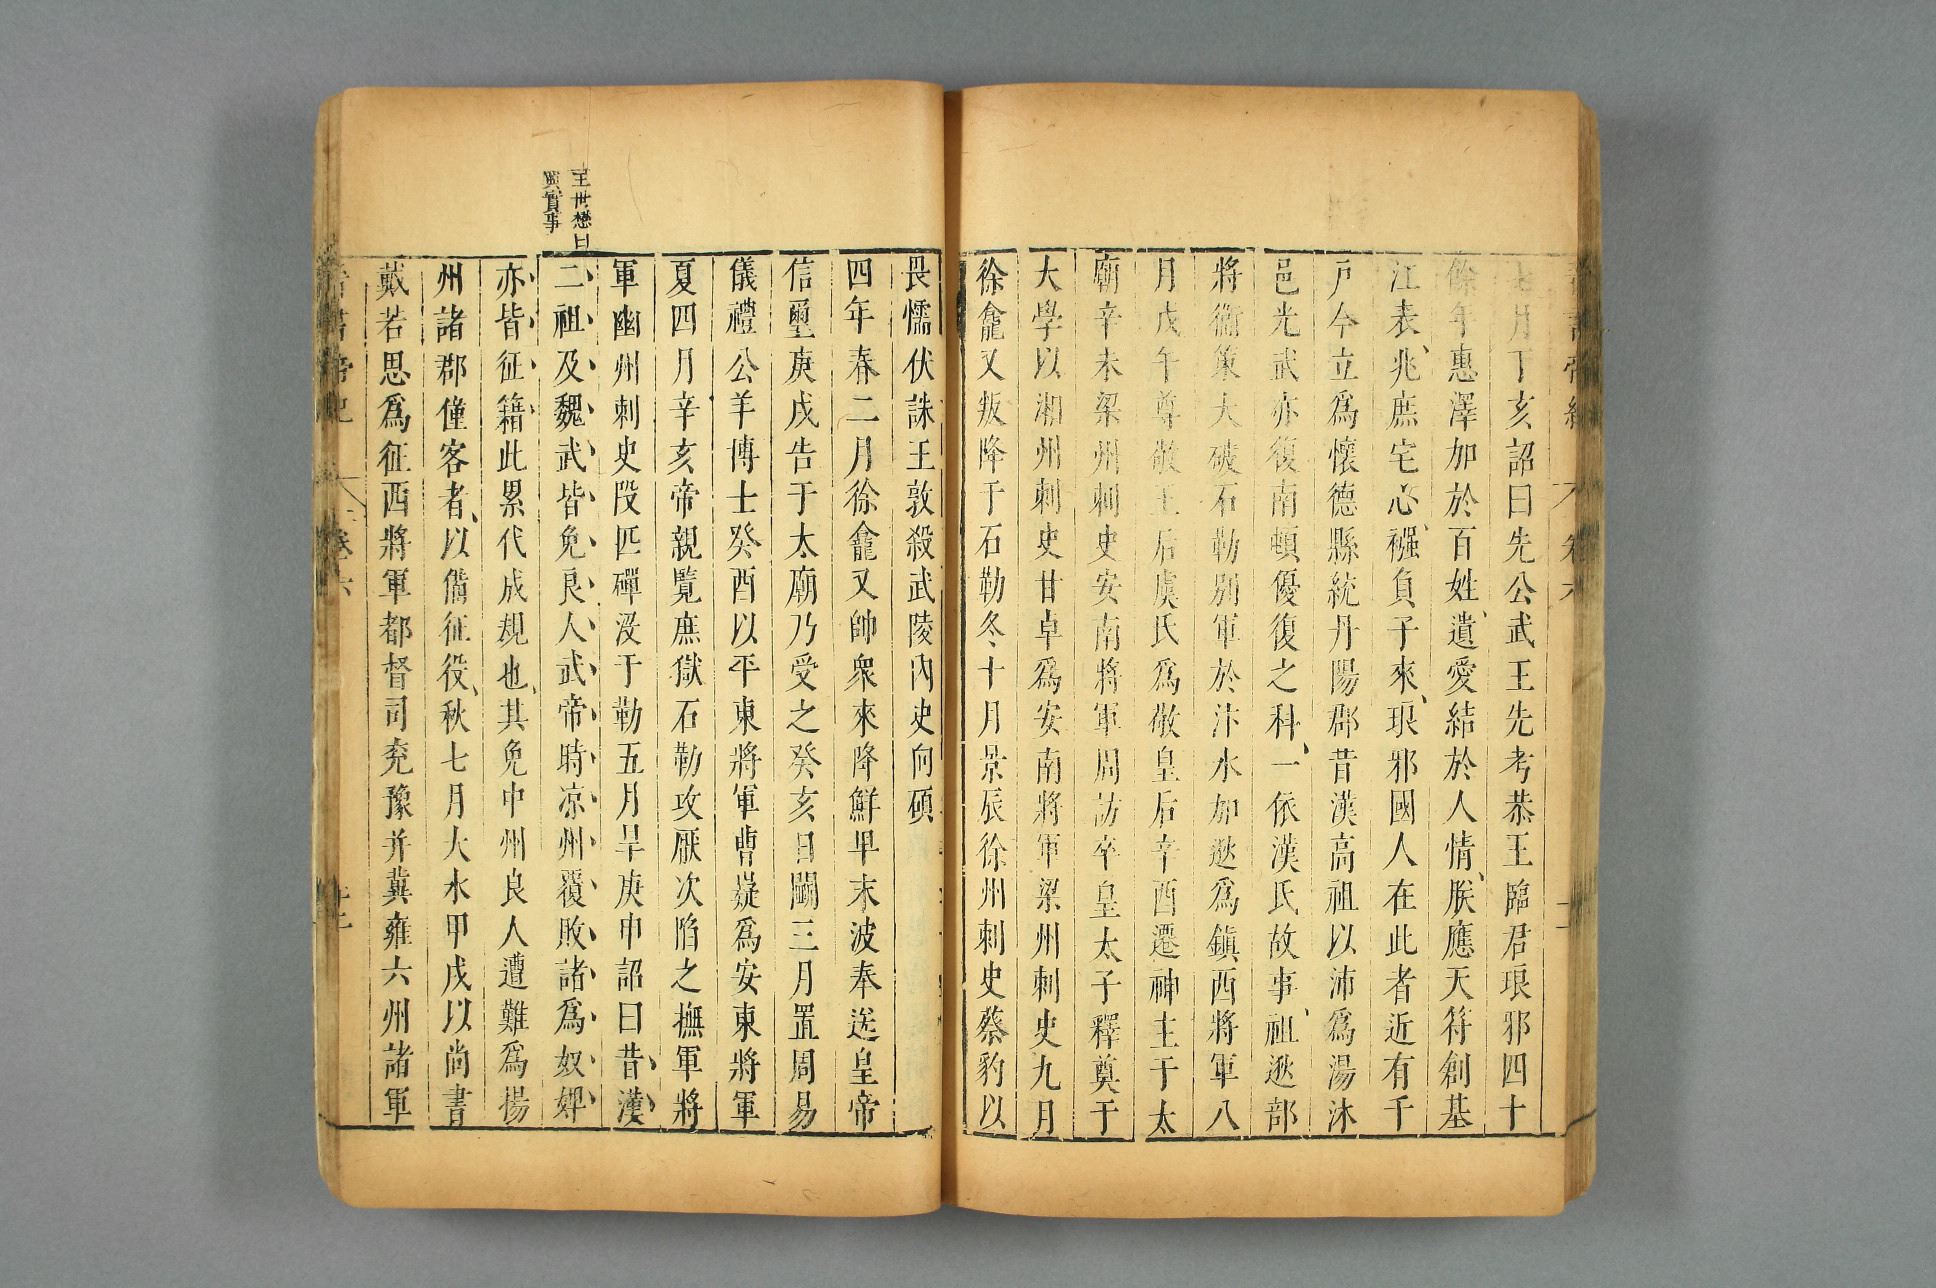 七月丁亥詔曰先公武王先考恭王臨君琅邪四十
餘年惠澤加於百姓遺愛結於人情朕應天符創基
江表兆庶宅心襁負子來琅邪國人在此者近有千
戶今立爲懷德縣統丹陽郡昔漢高祖以沛爲湯沐
邑光武亦復南頓優復之科一依漢氏故事祖逖部
將衞策大破石勒別軍於汴水加逖爲鎮西將軍八
月戊午尊敬王后虞氏爲敬皇后辛酉遷神主于太
廟辛未梁州刺史安南將軍周訪卒皇太子釋奠于
大學以湘州刺史甘卓爲安南將軍梁州刺史九月
徐龕又叛降于石勒冬十月景辰徐州刺史蔡豹以
畏懦伏誅王敦殺武陵內史向碩
四年春二月徐龕又帥衆來降鮮卑末波奉送皇帝
信璽庚戌告于太廟乃受之癸亥日鬭三月置周易
儀禮公羊博士癸酉以平東將軍曹嶷爲安東將軍
夏四月辛亥帝親覽庶獄石勒攻厭次陷之撫軍將
軍幽州刺史段匹磾沒于勒五月旱庚申詔曰昔漢
二祖及魏武皆免良人武帝時凉州覆敗諸爲奴婢
亦皆征籍此累代成規也其免中州良人遭難爲揚
州諸郡僮客者以備征役秋七月大水甲戌以尚書
戴若思爲征西將軍都督司兖豫并冀雍六州諸軍
王世懋曰
興實事
晉書帝紀
卷六
十二